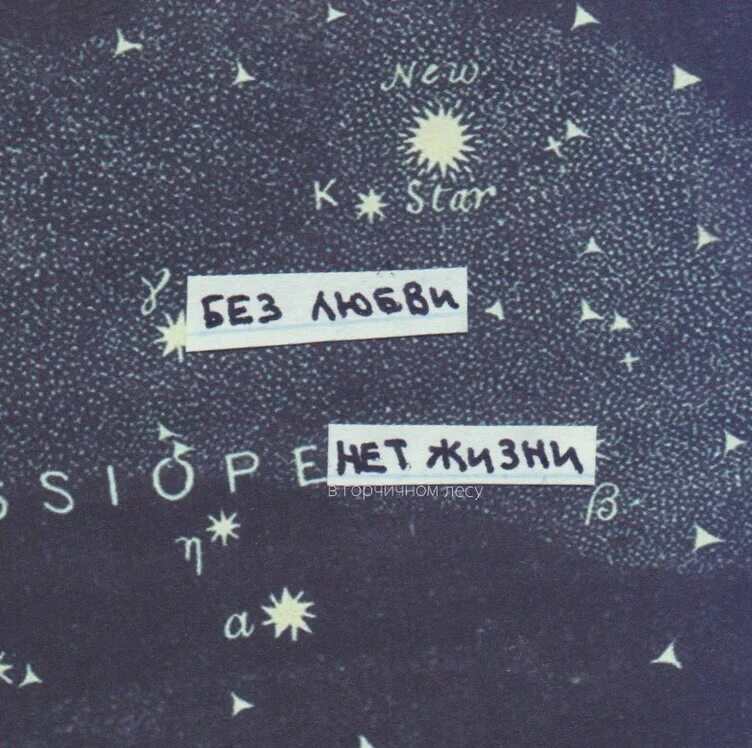 New
K Star
γ
БЕЗ ЛЮБВИ
SSIOPE
НЕТ ЖИЗНИ
в горчичном лесу
β
η
α